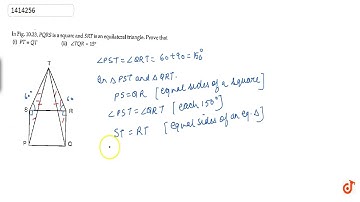 1414256
In Fig. 10.23, PQRS is a square and SRT is an equilateral triangle. Prove that
(i) PT = QT (ii) ∠TQR = 15°
T
60° 60
S R
P Q
∠PST = ∠QRT = 60+90 = 150°
In △ PST and △ QRT.
PS = QR [equal sides of a square]
∠PST = ∠QRT [each 150°]
ST = RT [equal sides of an eq. △]